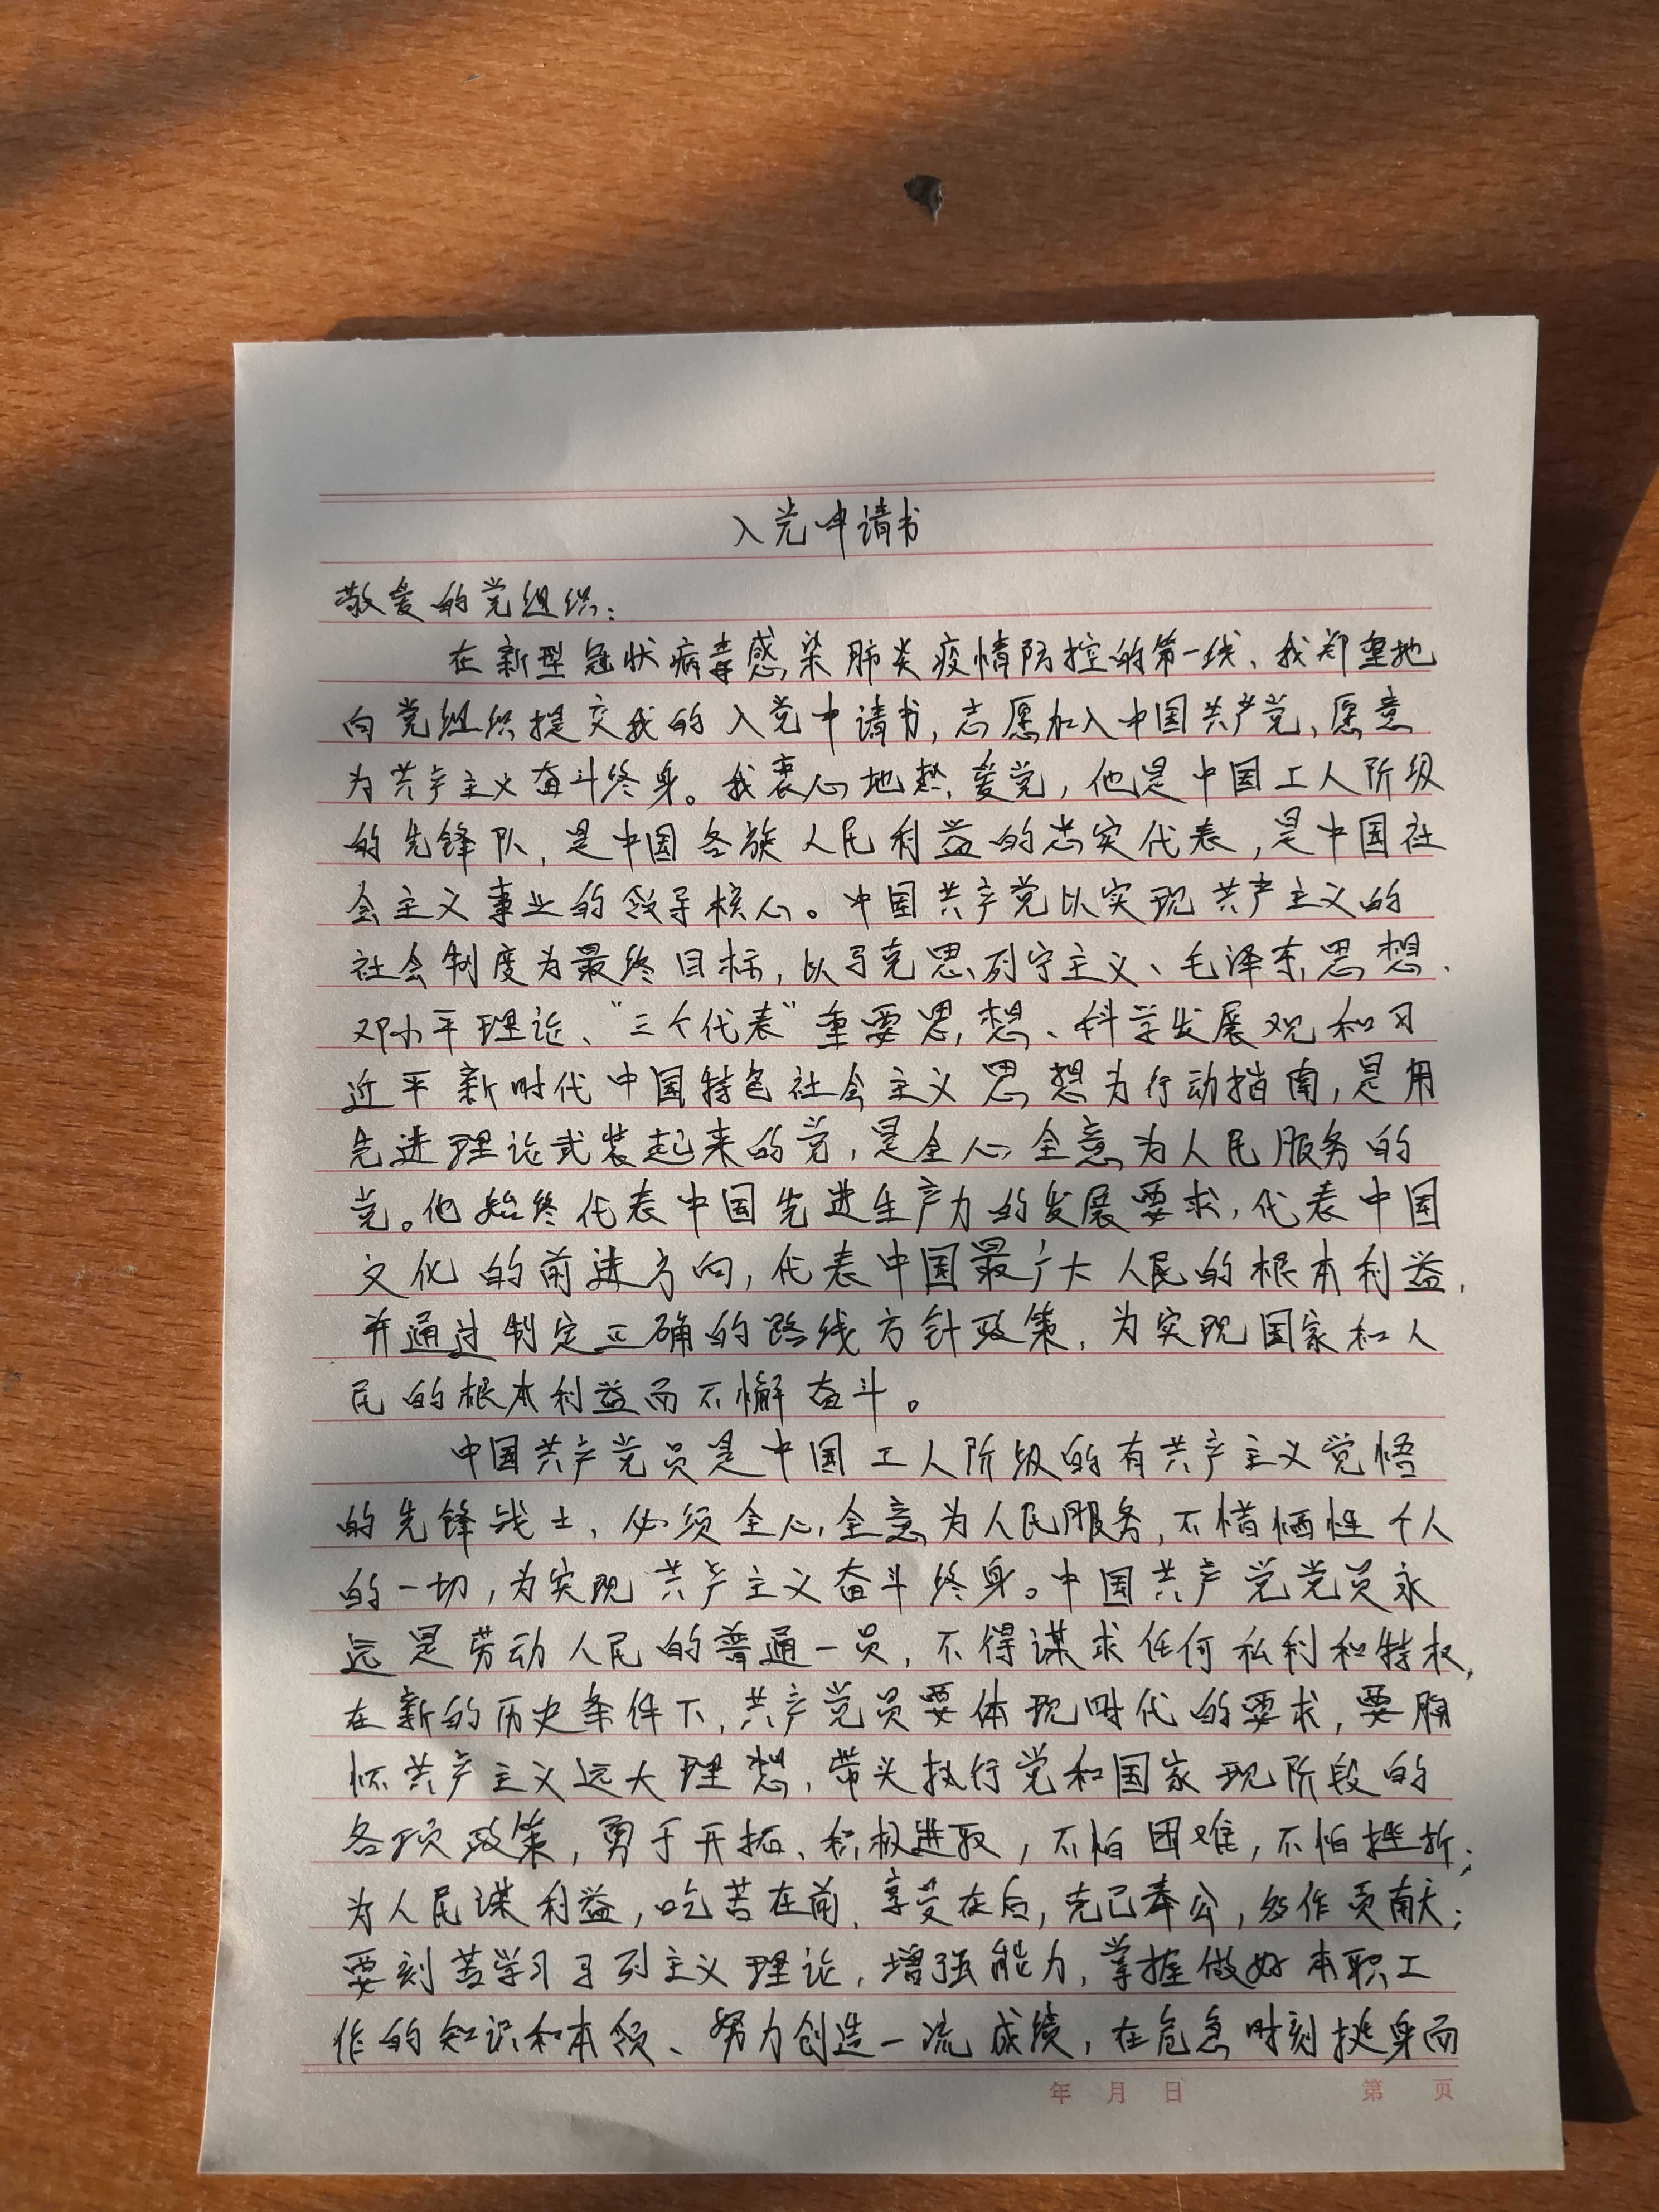 入党申请书
敬爱的党组织：
在新型冠状病毒感染肺炎疫情防控的第一线、我郑重地
向党组织提交我的入党申请书，志愿加入中国共产党、愿意
为共产主义奋斗终身。我衷心地热爱党，他是中国工人阶级
的先锋队，是中国各族人民利益的忠实代表，是中国社
会主义事业的领导核心。中国共产党以实现共产主义的
社会制度为最终目标，以马克思列宁主义、毛泽东思想、
邓小平理论、“三个代表”重要思想、科学发展观和习
近平新时代中国特色社会主义思想为行动指南，是用
先进理论武装起来的党，是全心全意为人民服务的
党。他始终代表中国先进生产力的发展要求，代表中国
文化的前进方向，代表中国最广大人民的根本利益，
并通过制定正确的路线方针政策，为实现国家和人
民的根本利益而不懈奋斗。
中国共产党员是中国工人阶级的有共产主义觉悟
的先锋战士，必须全心全意为人民服务，不惜牺牲个人
的一切，为实现共产主义奋斗终身。中国共产党党员永
远是劳动人民的普通一员，不得谋求任何私利和特权，
在新的历史条件下，共产党员要体现时代的要求，要胸
怀共产主义远大理想，带头执行党和国家现阶段的
各项政策，勇于开拓、积极进取，不怕困难，不怕挫折；
为人民谋利益，吃苦在前，享受在后，克己奉公，多作贡献；
要刻苦学习马列主义理论，增强能力，掌握做好本职工
作的知识和本领、努力创造一流成绩，在危急时刻挺身而
年 月 日 第 页